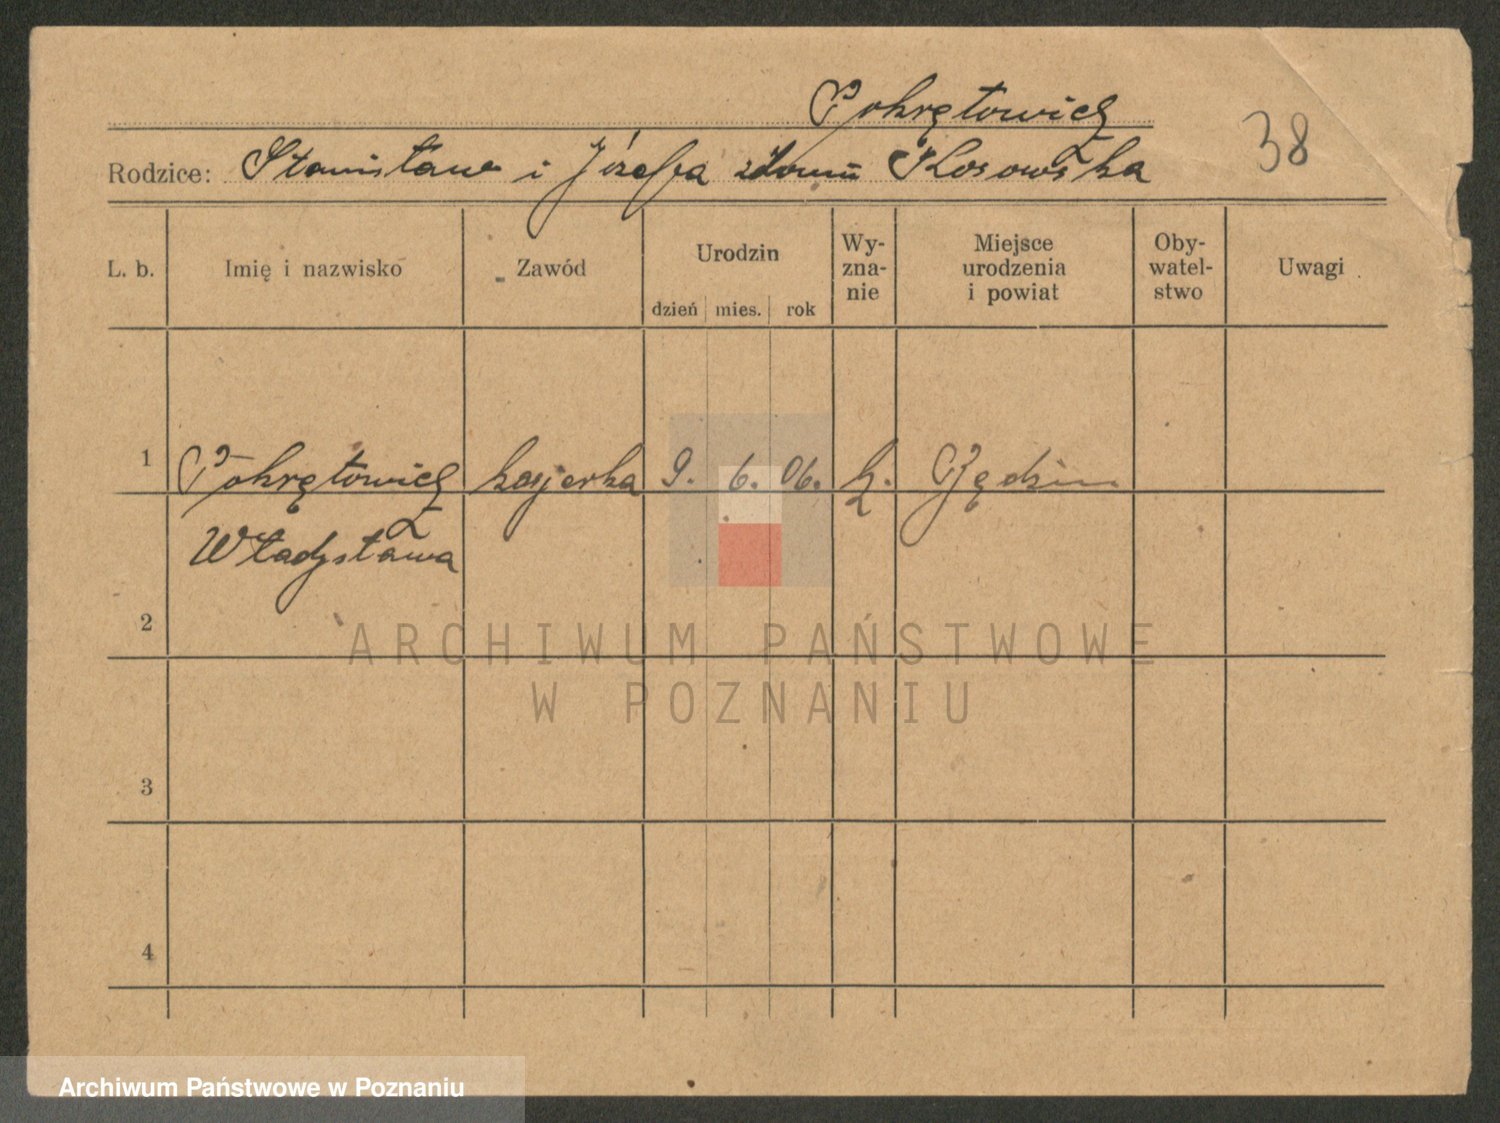 Pokrętowicz
Rodzice: Stanisław i Józefa z domu Kosowska
38
L. b. Imię i nazwisko Zawód Urodzin Wy-
zna-
nie Miejsce
urodzenia
i powiat Oby-
watel-
stwo Uwagi
dzień mies. rok
1 Pokrętowicz kasjerka 9. 6. 06. k. Będzin
Władysława
2
3
4
ARCHIWUM PAŃSTWOWE
W POZNANIU
Archiwum Państwowe w Poznaniu